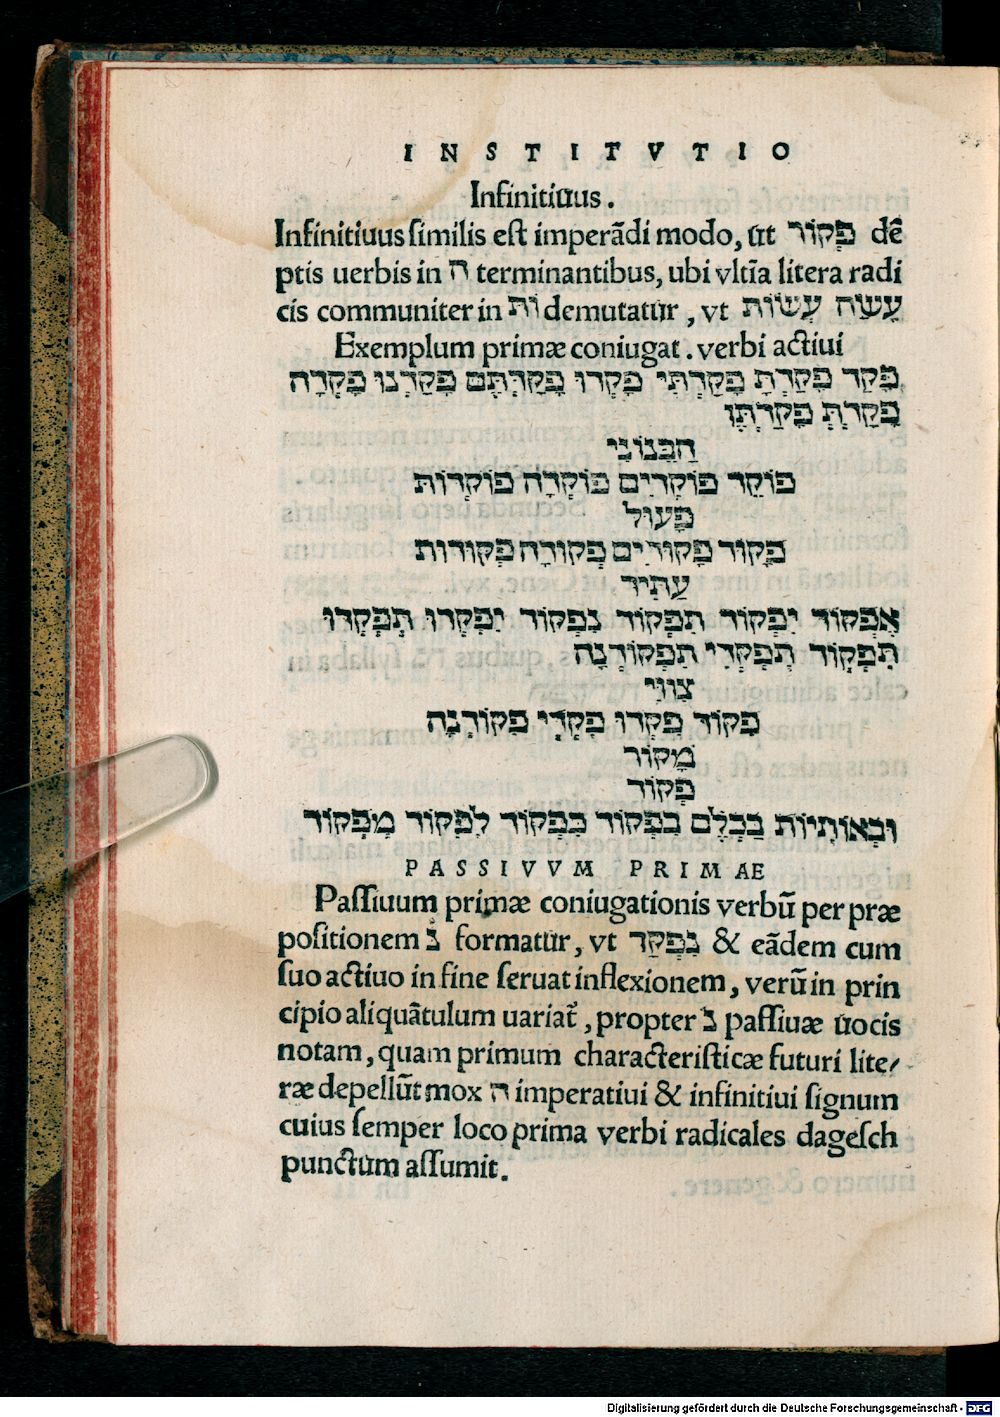 INSTITVTIO
Infinitiuus.
Infinitiuus similis est imperādi modo, ut פְּקוֹד dē
ptis uerbis in ה terminantibus, ubi vltīa litera radi
cis communiter in וֹת demutatur, vt עֲשׂוֹת עָשָׂה
Exemplum primæ coniugat. verbi actiui
פָּקַד פָּקַדְתָּ פָּקַדְתִּי פָּקְדוּ פָּקַדְתֶּם פָּקַדְנוּ פָּקְדָה
פָּקַדְתְּ פָּקַדְתֶּן
הַבֵּנוֹנִי
פּוֹקֵד פּוֹקְדִים פּוֹקְדָה פּוֹקְדוֹת
פָּעוּל
פָּקוּד פְּקוּדִים פְּקוּדָה פְּקוּדוֹת
עָתִיד
אֶפְקוֹד יִפְקוֹד תִּפְקוֹד נִפְקוֹד יִפְקְדוּ תִּפְקְדוּ
תִּפְקוֹד תִּפְקְדִי תִּפְקוֹדְנָה
צִוּוּי
פְּקוֹד פִּקְדוּ פִּקְדִי פְּקוֹדְנָה
מָקוֹר
פְּקוֹד
וּבְאוֹתִיּוֹת בַכְלָם בִּפְקוֹד כִּפְקוֹד לִפְקוֹד מִפְּקוֹד
PASSIVVM PRIMAE
Passiuum primæ coniugationis verbū per præ
positionem נ formatur, vt נִפְקַד & eādem cum
suo actiuo in fine seruat inflexionem, verū in prin
cipio aliquātulum uariat, propter נ passiuæ uocis
notam, quam primum characteristicæ futuri lite/
ræ depellūt mox ה imperatiui & infinitiui signum
cuius semper loco prima verbi radicales dagesch
punctum assumit.
Digitalisierung gefördert durch die Deutsche Forschungsgemeinschaft - DFG